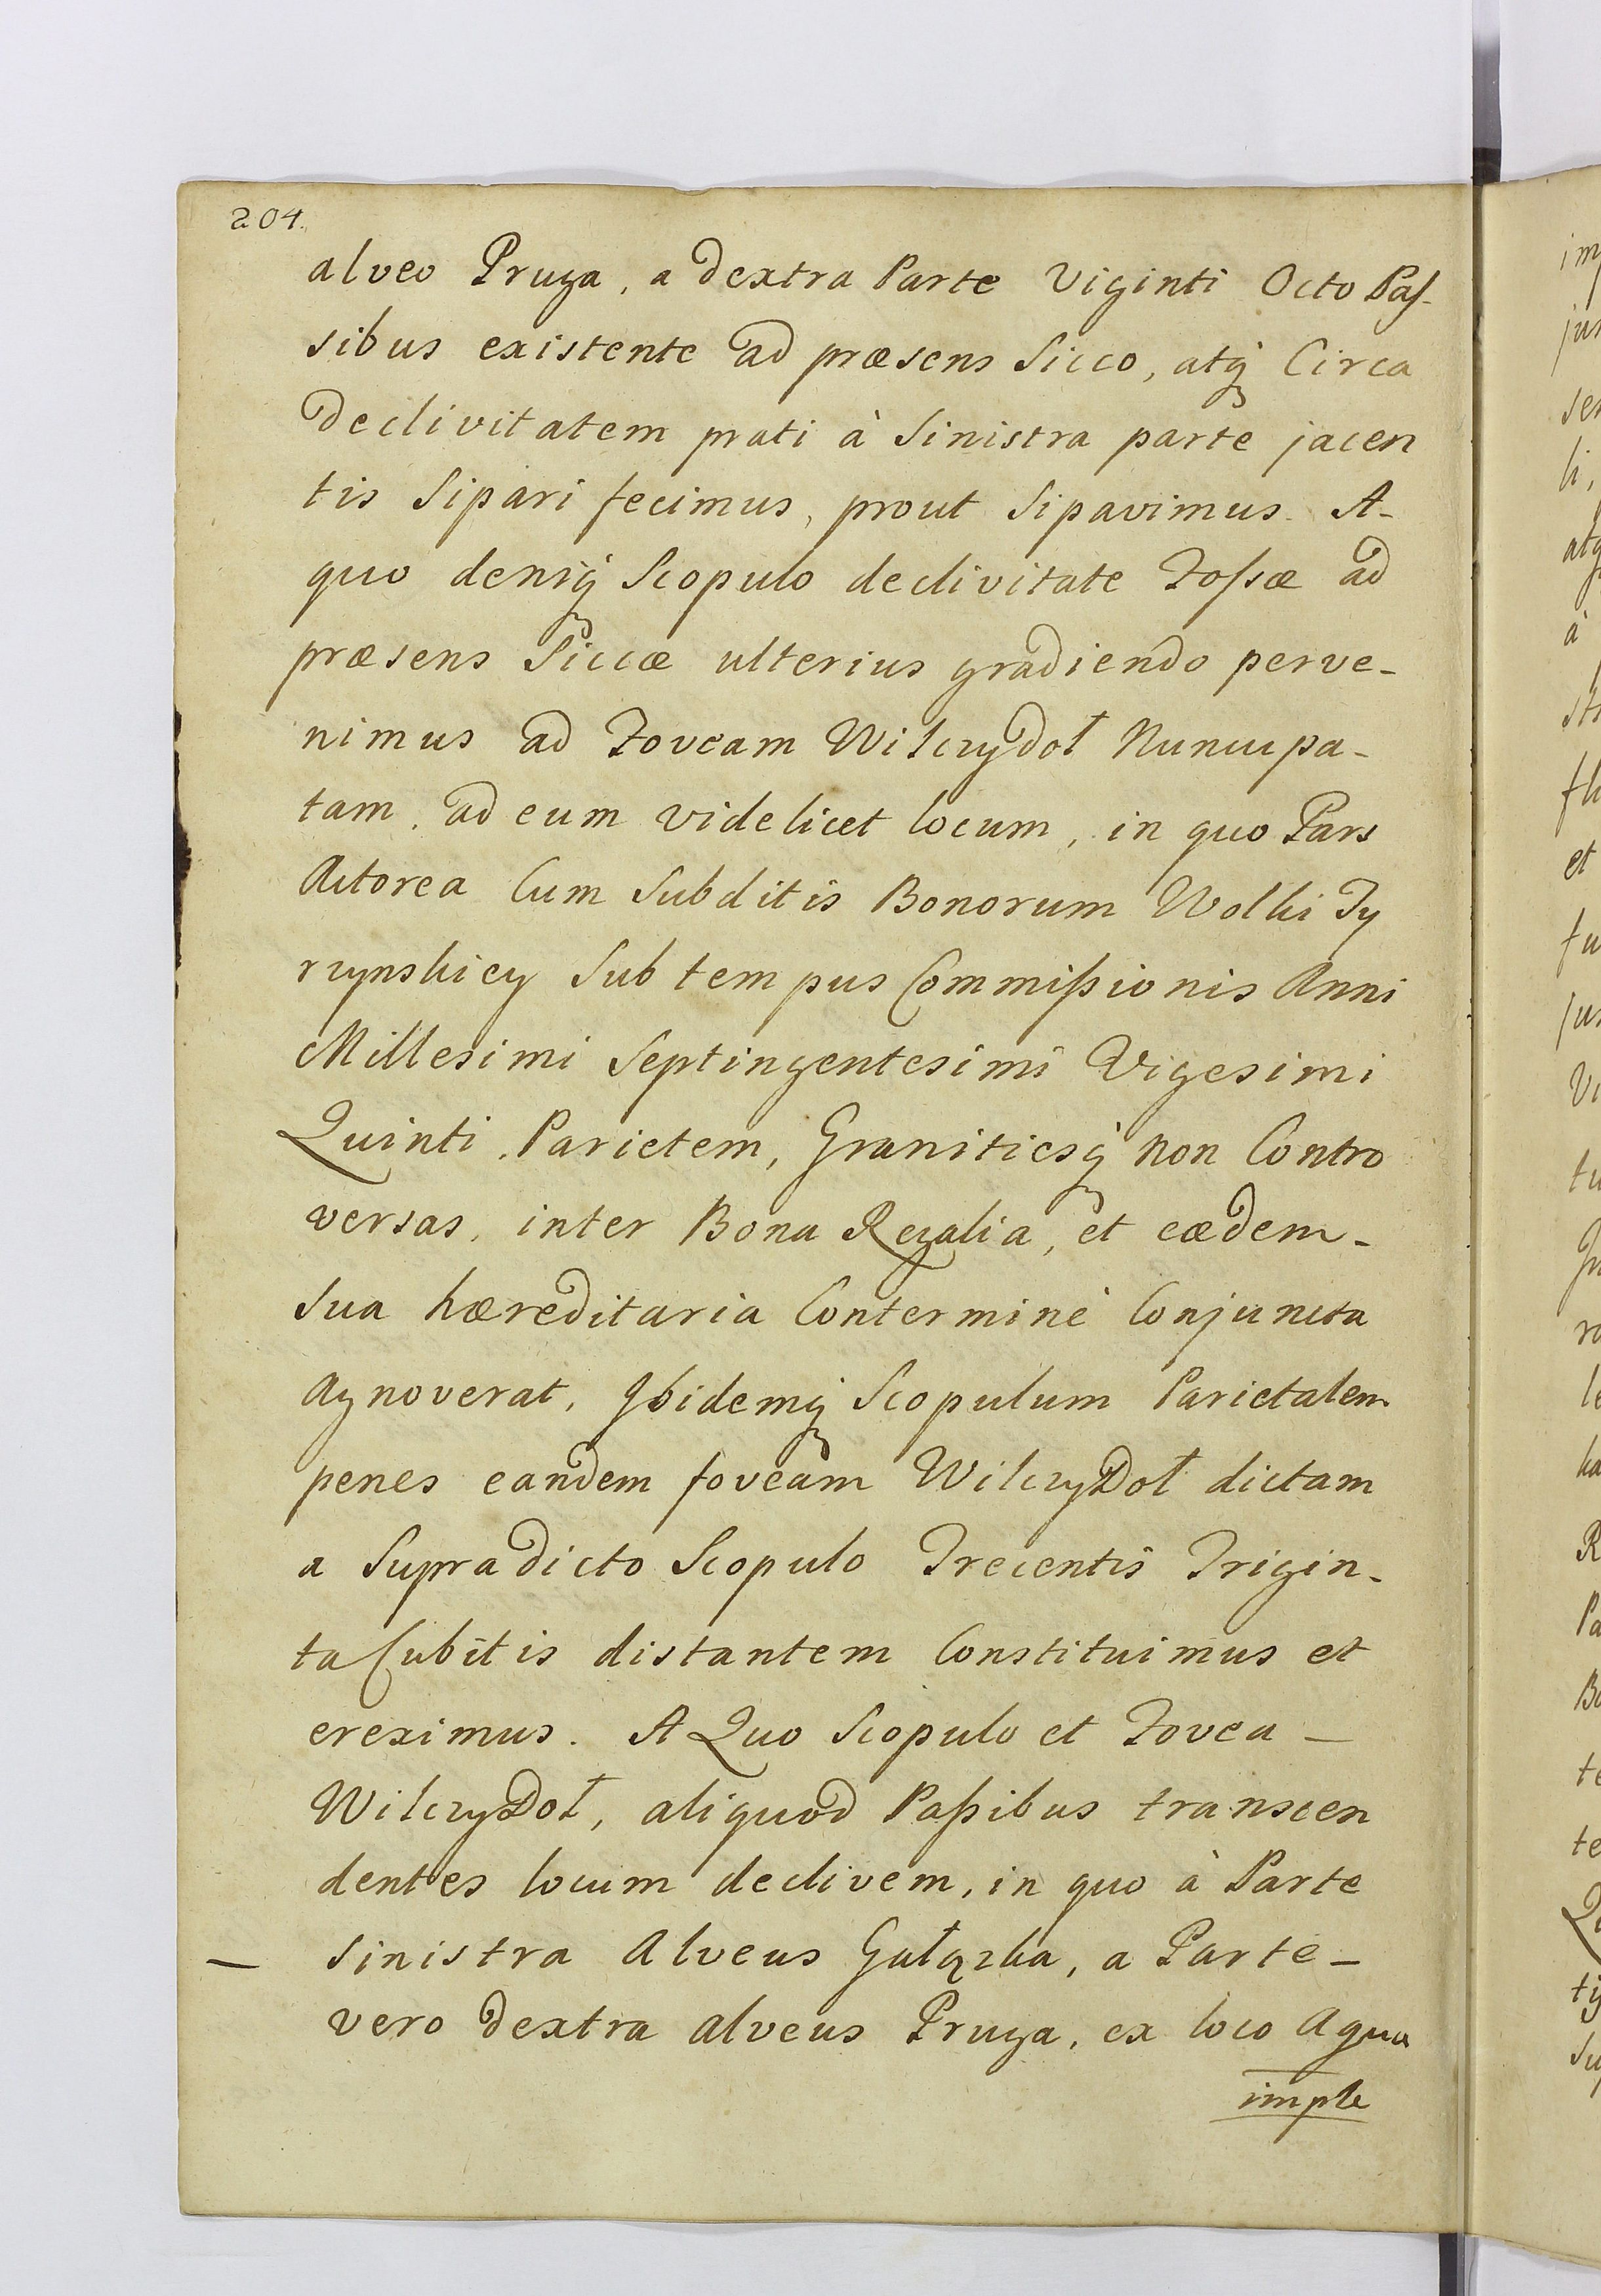 204.
alveo Pruga, a dextra Parte Viginti Octo Pas-
sibus existente ad præsens Sicco, atq́ Circa
declivitatem prati à Sinistra parte jacen
tis Sipari fecimus, prout Sipavimus. A-
quo deniq́ Scopulo declivitate Fossæ ad
præsens Siccæ ulterius gradiendo perve-
nimus ad Foveam Wilczydoł Nuncupa-
tam, ad eum videlicet locum, in quo Pars
Actorea Cum Subditis Bonorum Wolki Ty
rzynskiey Sub tempus Commissionis Anni
Millesimi Septingentesimi Vigesimi
Quinti, Parietem, Granitiesq́ non Contro
versas, inter Bona Regalia, et eædem-
Sua hæreditaria Conterminè Conjuncta
Agnoverat, Ibidemq́ Scopulum Parietalem
penes eandem foveam WilczyDoł dictam
a Supradicto Scopulo Trecentis Trigin-
ta Cubitis distantem Constituimus et
ereximus. A Quo Scopulo et Fovea —
WilczyDoł, aliquod Passibus transcen
dentes locum declivem, in quo à Parte
— Sinistra Alveus Gałązka, a Parte —
vero dextra alveus Pruga, ex loco Aqua
imple
im
jur
ser
li,
atq
à
fl
et
fu
jur
Vi
tu
ro
le
ha
R
Pa
Bo
te
te
Qu
tij
Su